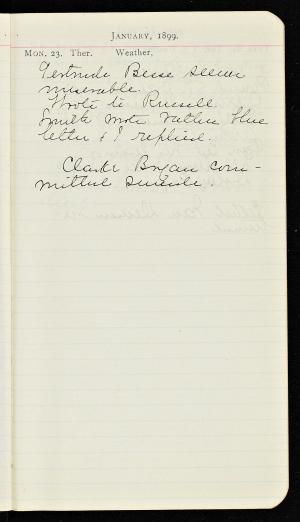 January, 1899.
Mon. 23. Ther. Weather.
Gertrude Besse seems
miserable.
Wrote to Russell.
Smith wrote rather blue
letter & I replied.
Clark Bryan com-
mitted suicide.